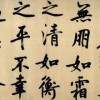 無朋如霜
之清如衡
之平不幸